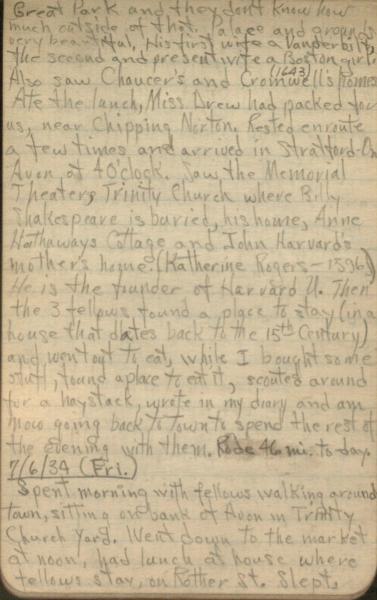 Great Park and they don't know how
much outside of that. Palace and grounds
very beautiful, His first wife a Vanderbilt,
the second and present wife a Boston girl.
Also saw Chaucer's and Cromwell's (1643) homes
Ate the lunch, Miss Drew had packed for
us, near Chipping Norton. Rested enroute
a few times and arrived in Stratford-On
Avon at 4 O'clock. Saw the Memorial
Theater, Trinity Church where Billy
Shakespeare is buried, his home, Anne
Hathaways Cottage and John Harvard's
mother's home. (Katherine Rogers - 1596)
He is the founder of Harvard U. Then
the 3 fellows found a place to stay (in a
house that dates back to the 15th Century)
and went out to eat, while I bought some
stuff, found a place to eat it, scouted around
for a haystack, wrote in my diary and am
now going back to town to spend the rest of
the evening with them. Rode 46 mi. to day.
7/6/34 (Fri.)
Spent morning with fellows walking around
town, sitting on bank of Avon in Trinity
Church Yard. Went down to the market
at noon, had lunch at house where
fellows stay, on Rother St. Slept,